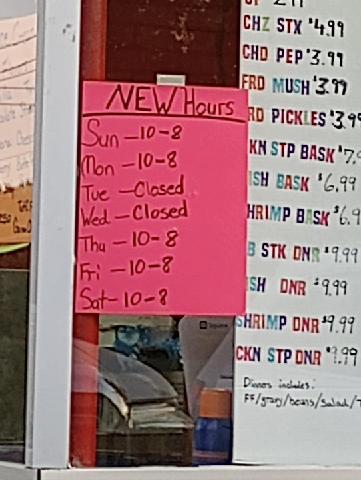 NEW Hours
Sun - 10-8
Mon - 10-8
Tue - Closed
Wed - Closed
Thu - 10-8
Fri - 10-8
Sat - 10-8
CHZ STX $4.99
CHD PEP $3.99
FRD MUSH $3.99
RD PICKLES $3.9
KN STP BASK $7.9
ISH BASK $6.99
HRIMP BASK $6.9
B STK DNR $9.99
SH DNR $9.99
SHRIMP DNR $9.99
CKN STP DNR $9.99
Dinners includes:
FF/gravy/beans/Salad/T
Square